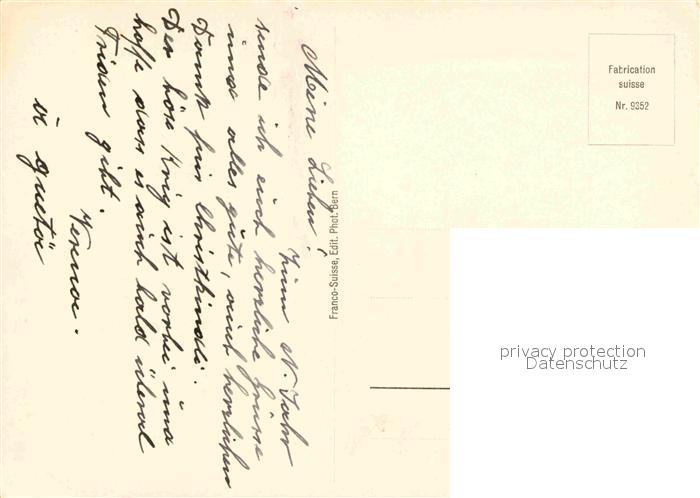 Meine Lieben!
Zum N. Jahr
sende ich euch herzliche Grüsse
und alles gute, auch herzlichen
Dank für Christkindli.
Der böse Krig ist vorbei und
hoffe dass es auch bald überal
Friden gibt.
Verena.
Franco-Suisse, Edit. Phot. Bern
Fabrication
suisse
Nr. 9352
privacy protection
Datenschutz